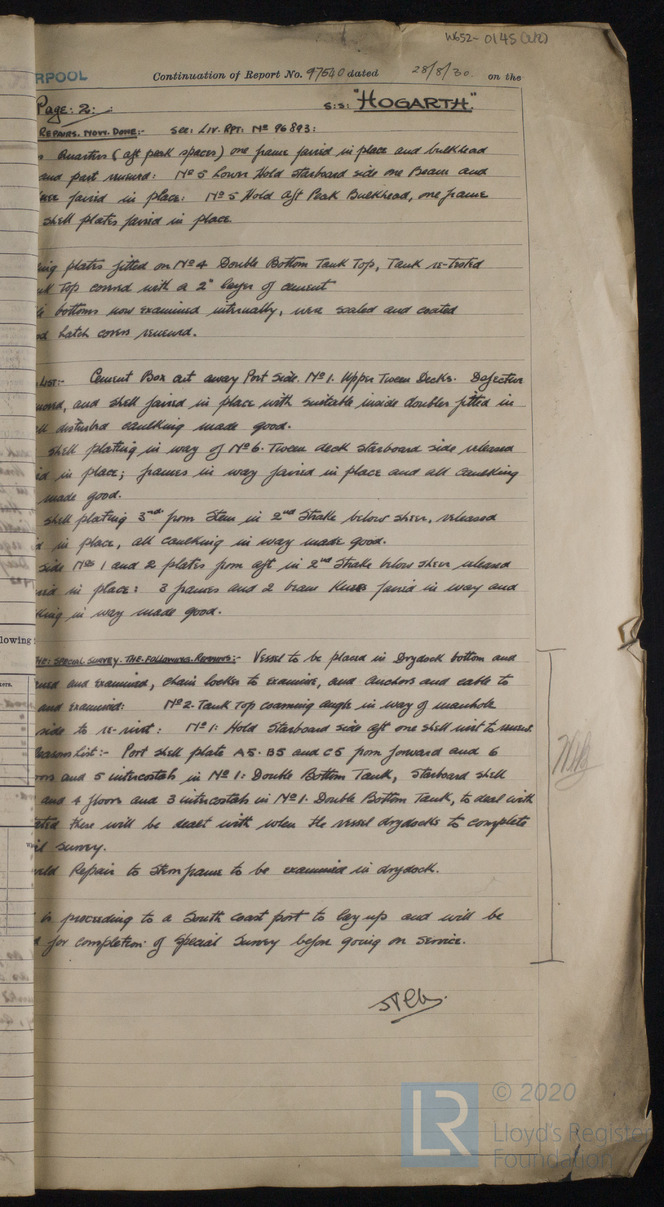 W652-0145(2/2)
RPOOL Continuation of Report No. 97540 dated 28/8/30. on the
Page: 2: S:S: "HOGARTH."
REPAIRS. NOW. DONE:- SEE: LIV. RPT: Nº 96893:
Quarters (aft peak spaces) one frame faired in place and bulkhead
and part renewed: Nº 5 Lower Hold Starboard side one Beam and
faired in place: Nº 5 Hold Aft Peak Bulkhead, one frame
shell plates faired in place
ing plates fitted on Nº 4 Double Bottom Tank Top, Tank re-tested
Top covered with a 2" layer of cement
bottoms now examined internally, were scaled and coated
hatch covers renewed.
LIST:- Cement Box cut away Port Side. Nº 1. Upper Tween Decks. Defective
and shell faired in place with suitable inside doubler fitted in
disturbed caulking made good.
shell plating in way of Nº 6. Tween deck starboard side released
in place; frames in way faired in place and all caulking
made good.
shell plating 3rd from Stem in 2nd Strake below sheer, released
in place, all caulking in way made good.
side Nos 1 and 2 plates from aft in 2nd Strake below sheer released
in place: 3 frames and 2 beam knees faired in way and
king in way made good.
lowing
RE: SPECIAL SURVEY. THE. FOLLOWING. REPAIRS:- Vessel to be placed in Drydock bottom and
and examined, chain locker to examine, and anchors and cable to
and examined: Nº 2. Tank Top coaming angle in way of manhole
side to re-rivet: Nº 1: Hold Starboard side aft one shell rivet to renew.
List:- Port shell plate A5. B5 and C5 from forward and 6
and 5 intercostals in Nº 1: Double Bottom Tank, Starboard shell
and 4 floors and 3 intercostals in Nº 1. Double Bottom Tank, to deal with
these will be dealt with when the vessel drydocks to complete
survey.
Repair to Stern frame to be examined in drydock.
is proceeding to a South Coast port to lay up and will be
for completion of Special Survey before going on service.
© 2020
LR Lloyd's Register
Foundation